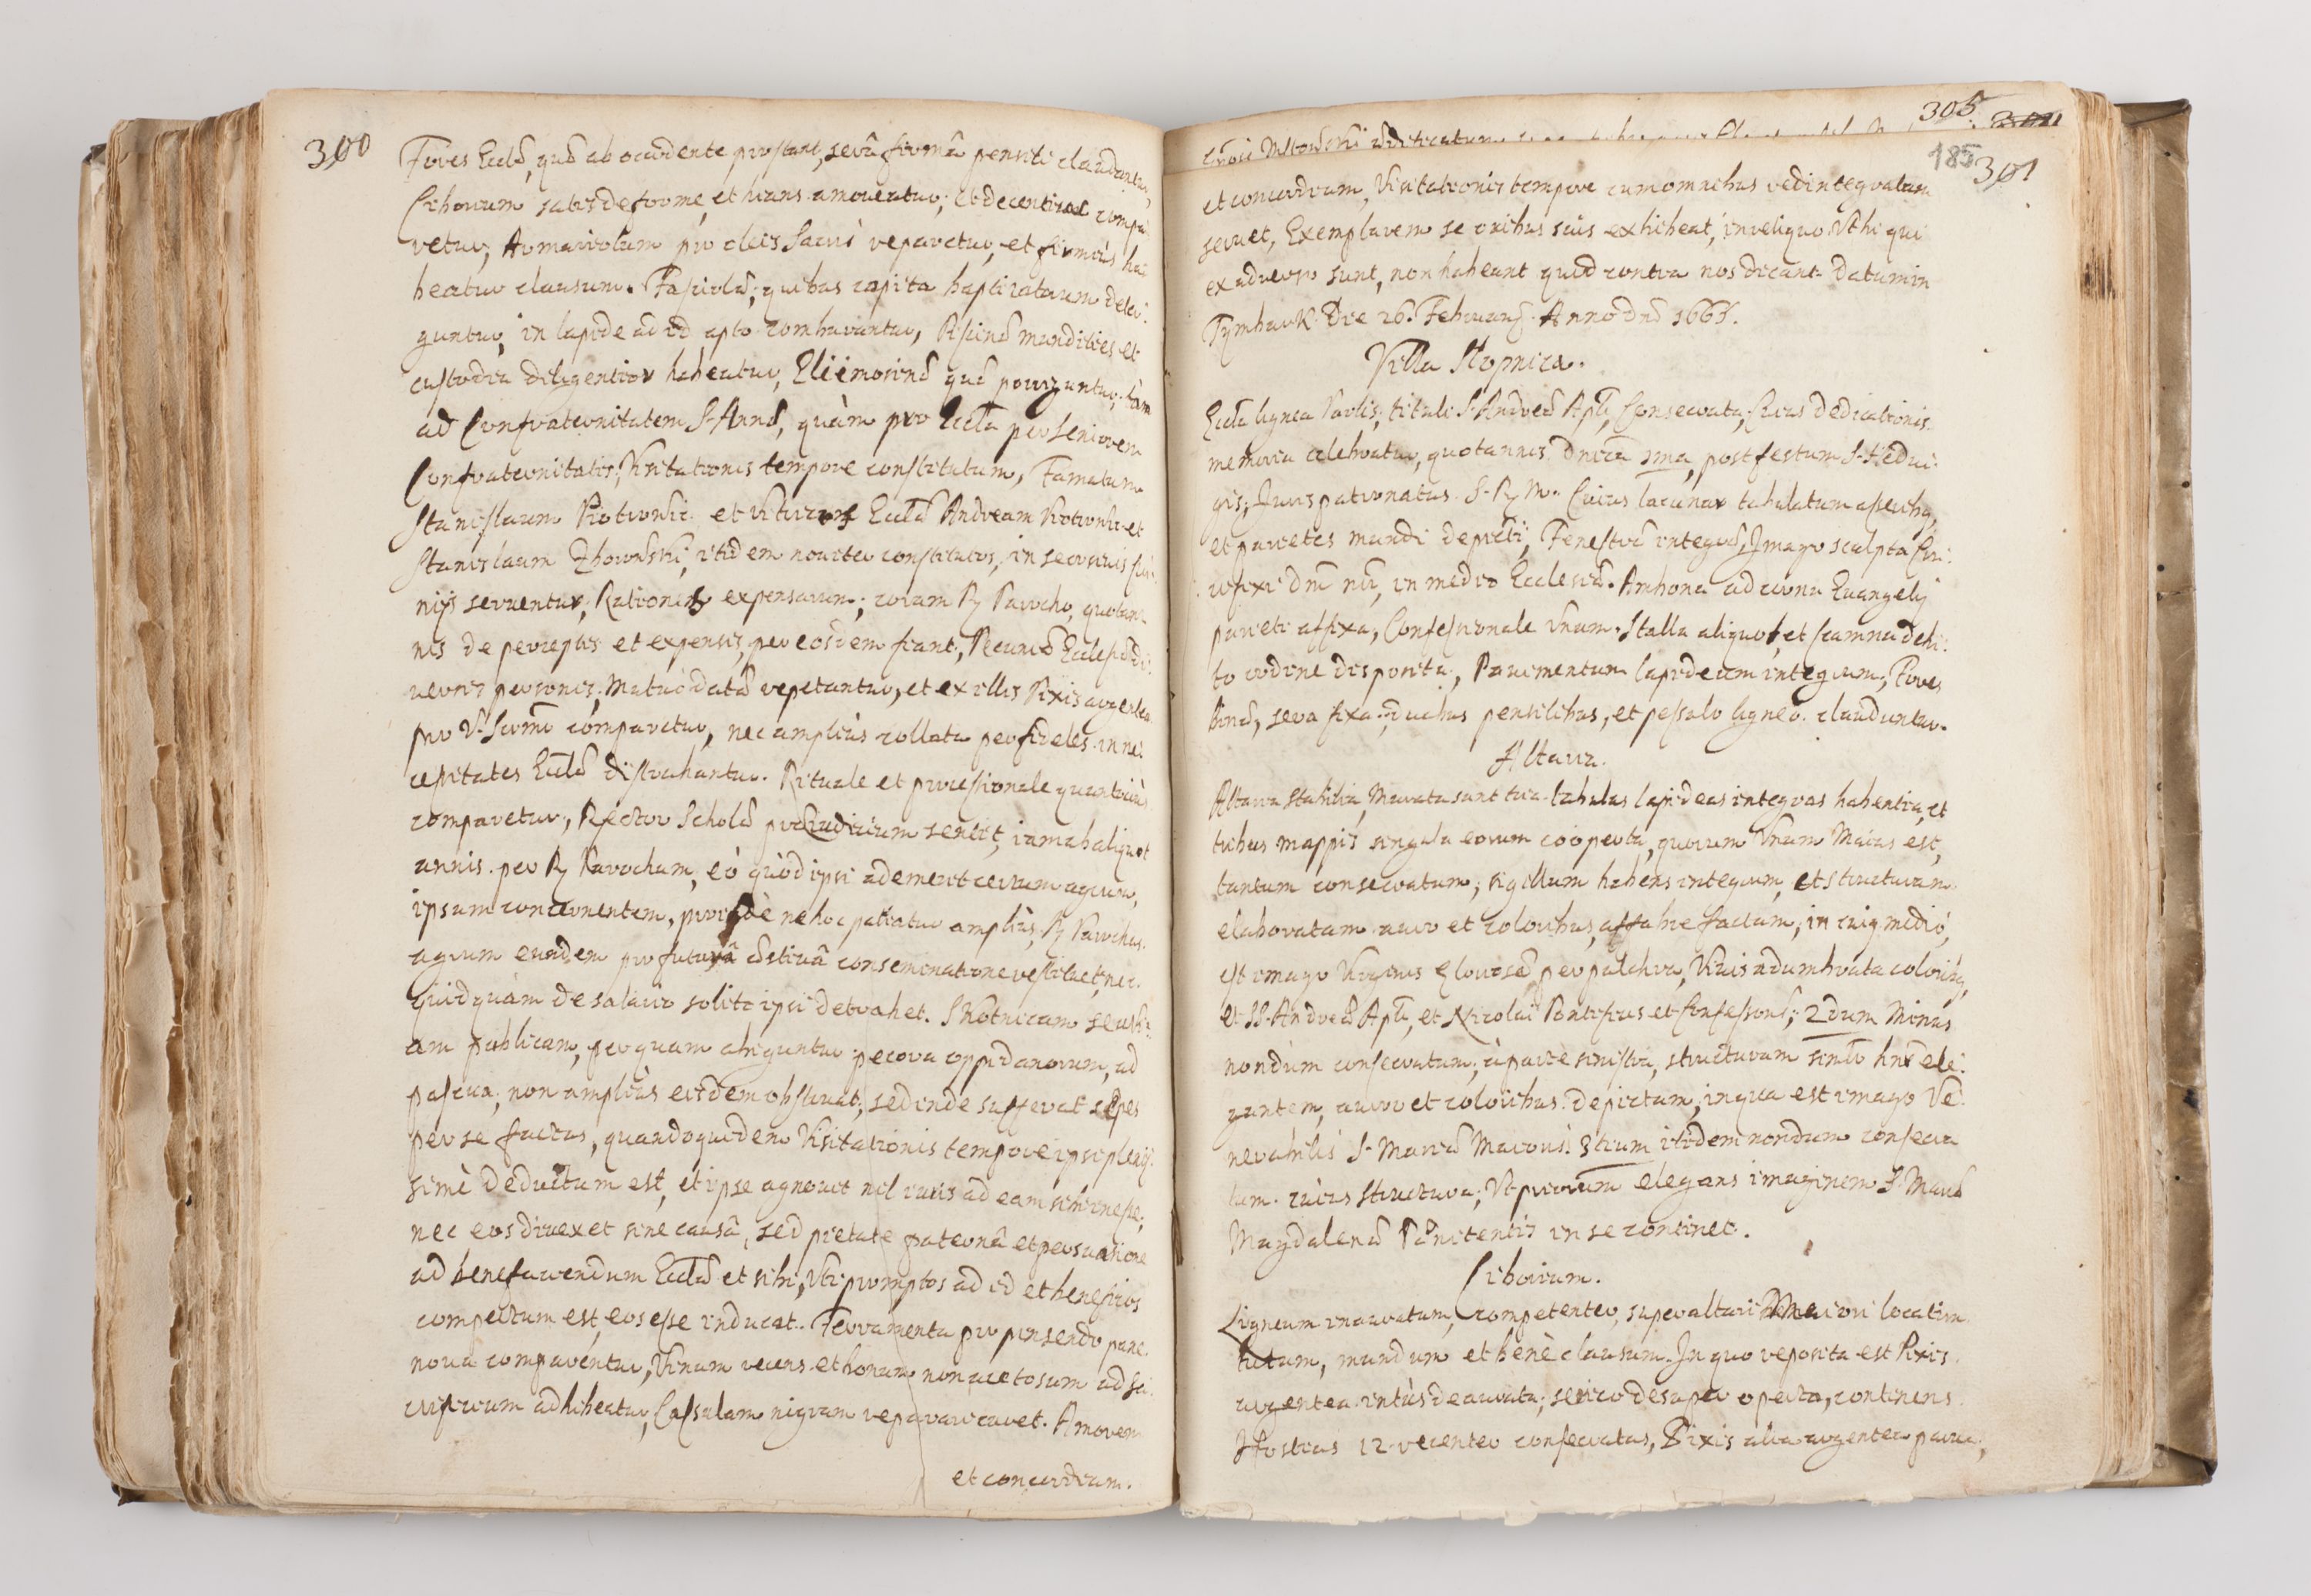 300
Fores Eccl̃æ, quæ ab occidente prostant, serâ firmâ pensili claudantur,
Ciborium satis deforme, et hians amoveatur; et decentius compa:
retur, Armariolum pro oleis Sacris reparetur, et firmiùs ha:
beatur clausum. Fasciolæ, quibus capita baptizatorum deter:
guntur, in lapide ad id apto comburantur, Piscinæ mundities et
custodia diligentior habeatur, Eliemosinæ quæ porriguntur, tàm
ad Confraternitatem S. Annæ, quàm pro Eccl̃a per Seniorem
Confraternitatis, Visitationis tempore constitutum, Famatum
Stanislaum et Vitricos Eccl̃æ Andream et
Stanislaum itidem noviter constitutos, in securis scri:
nijs serventur, Rationes expensarum, coram R. Parocho, quotan:
nis de perceptis et expensis, per eosdem fiant, Pecuniæ Ecclesiæ di:
versis personis, mutuò datæ repetantur, et ex illis Pixis argentea
pro V. Scr̃mo comparetur, nec ampliùs collata per fideles in ne:
cessitates Eccl̃æ distrahantur. Rituale et processionale quantociùs
comparetur, Rector Scholæ præiudicium sentit, iam ab aliquot
annis per R. Parochum, eò quòd ipsi ademerit certum agrum,
ipsum concernentem, proindè ne hoc patiatur ampliùs, R. Parochus
agrum eundem pro futurâ æstivâ conseminatione restituet, nec
quidquàm de salario solito ipsi detrahet. Skotnicam seu vi:
am publicam, per quam abiguntur pecora oppidanorum, ad
pascua, non ampliùs eisdem obstruat; sed inde sufferat sepes
per se factas, quandoquidem Visitationis tempore ipsi plenis:
simè deductum est, et ipse agnovit nil iuris ad eam sibi inesse,
nec eos divexet sine causâ, sed pietate paternâ et persuasione
ad benefaciendum Eccl̃æ et sibi, Uti promptos ad id et beneficos
compertum est, eos esse inducat. Ferramenta pro pinsendo pane
nova comparentur, Vinum recens et bonum non acetosum ad Sa:
crificium adhibeatur, Cassulam nigram reparari curet. Amorem
et concordiam.
305.
185 301
et concordiam, Visitationis tempore cum omnibus redintegratam
servet, Exemplarem se ovibus suis exhibeat, in reliquo Ut hi qui
ex adverso sunt, non habeant quid contra nos dicant. Datum in
Tymbark. Die 26. Februarij. Anno Dnĩ 1665.
Villa Słopnica.
Eccl̃a lignea Parõlis, tituli S. Andreæ Ap̃li, Consecrata, Cuius dedicationis
memoria celebratur, quotannis, Dnĩca 1ma, post festum S. Hedvi:
gis, Iuris patronatus S. R. M. Cuius lacunar tabulatum asseribus,
et parietes mundi depicti, Fenestræ integræ, Imago sculpta Cru:
cifixi Dnĩ nrĩ, in medio Ecclesiæ. Ambona ad cornu Evangelij
parieti affixa, Confessionale Vnum. Stalla aliquot, et scamna debi:
to ordine disposita, Pavimentum lapideum integrum, Fores
binæ, sera fixa, duabus pensilibus, et pessulo ligneo clauduntur.
Altaria.
Altaria Stabilia, Murata sunt tria, tabulas lapideas integras habentia, et
tribus mappis singula eorum cooperta, quorum Vnum Maius est,
tantum consecratum, sigillum habens integrum, et structuram
elaboratam auro et coloribus, affabre factam, in cuius medio,
est imago Virginis Gloriosæ, perpulchra, Vivis adumbrata coloribus,
et SS. Andreæ Ap̃li, et Nicolai Pontificis et Confessoris; 2dum Minus
nondum consecratum, à parte sinistra, structuram simĩlr hñs ele:
gantem, auro et coloribus depictam, in qua est imago Ve:
nerabilis S. Mariæ Maioris. 3tium itidem nondum consecra
tum. cuius structura, Vt priorum elegans imaginem S. Mariæ
Magdalenæ Pænitentis in se continet.
Ciborium.
Ligneum inauratum, competenter, super altari Maiori locatum
mundum et benè clausum. In quo reposita est Pixis
argentea intùs deaurata, serico desuper operta, continens
Hostias 12 recenter consecratas, Pixis alia argentea parva,